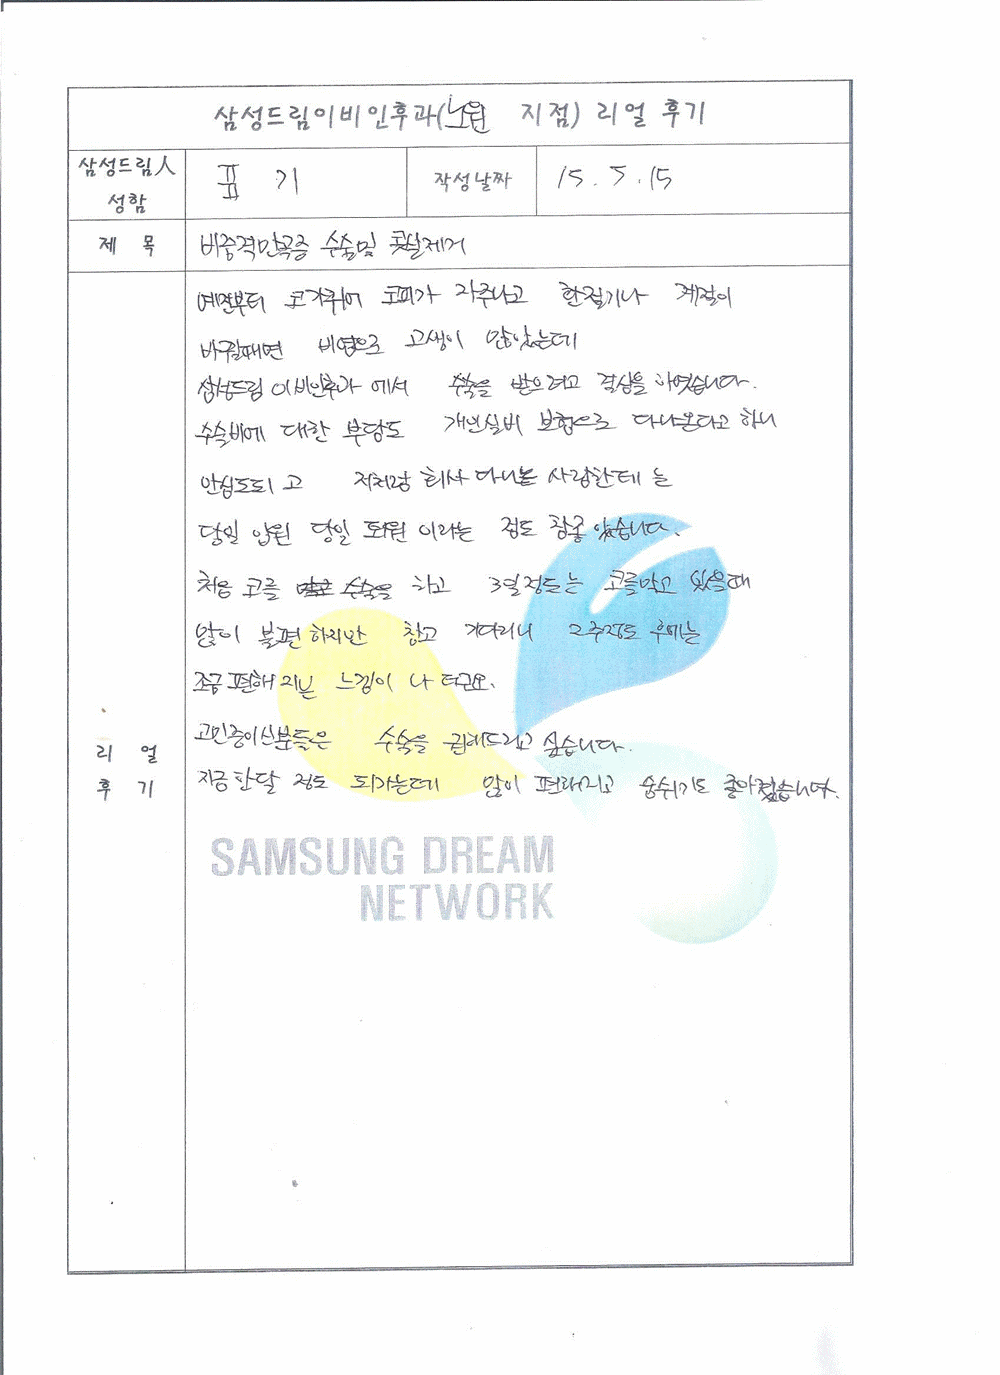 삼성드림이비인후과(노원 지점) 리얼 후기
삼성드림人 성함
기
작성날짜
15. 5. 15
제 목
비중격만곡증 수술및 콧살제거
리 얼 후 기
예전부터 코가쥐에 코피가 자주나고 환절기나 계절이
바뀔때면 비염으로 고생이 많았는데
삼성드림 이비인후과 에서 수술을 받으려고 결심을 하였습니다.
수술비에 대한 부담도 개인실비 보험으로 다나온다고 하니
안심도되 고 저처럼 회사 다니는 사람한테 는
당일 입원 당일 퇴원 이라는 점도 참좋 았습니다.
처음 코를 수술을 하고 3일정도는 코를막고 있을때
많이 불편 하지만 참고 기다리니 2주정도 후에는
조금 편해 지는 느낌이 나 더군요.
고민중이신분들은 수술을 권해드리고 싶습니다.
지금 한달 정도 되가는데 많이 편해지고 숨쉬기도 좋아졌습니다.
SAMSUNG DREAM
NETWORK